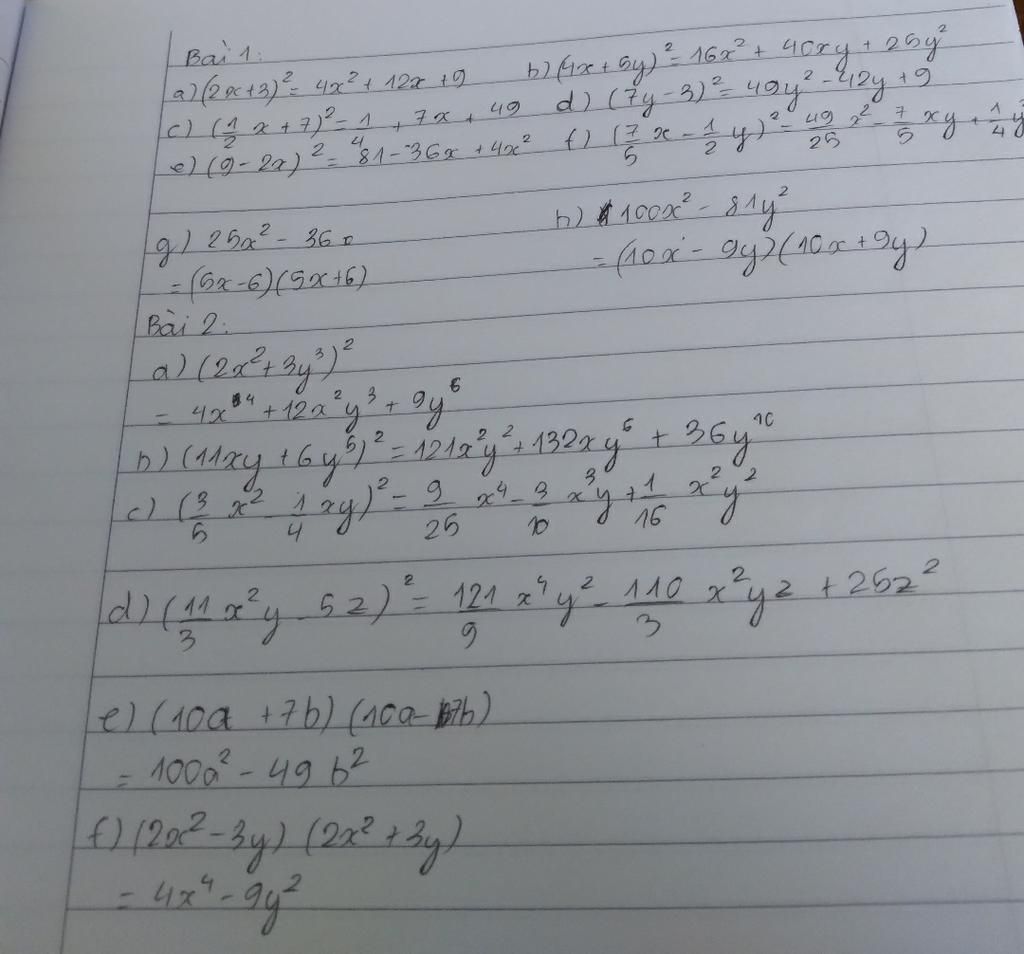 Bài 1:
a) (2x+3)² = 4x² + 12x + 9 b) (4x+5y)² = 16x² + 40xy + 25y²
c) (1/2 x + 7)² = 1/4 + 7x + 49 d) (7y - 3)² = 49y² - 42y + 9
e) (9 - 2x)² = 81 - 36x + 4x² f) (7/5 x - 1/2 y)² = 49/25 x² - 7/5 xy + 1/4 y²
g) 25x² - 36 h) 100x² - 81y²
= (5x-6)(5x+6) = (10x - 9y)(10x + 9y)
Bài 2:
a) (2x² + 3y³)²
= 4x⁴ + 12x²y³ + 9y⁶
b) (11xy + 6y⁵)² = 121x²y² + 132xy⁶ + 36y¹⁰
c) (3/5 x² - 1/4 xy)² = 9/25 x⁴ - 3/10 x³y + 1/16 x²y²
d) (11/3 x²y - 5z)² = 121/9 x⁴y² - 110/3 x²yz + 25z²
e) (10a + 7b) (10a - 7b)
= 100a² - 49b²
f) (2x² - 3y) (2x² + 3y)
= 4x⁴ - 9y²